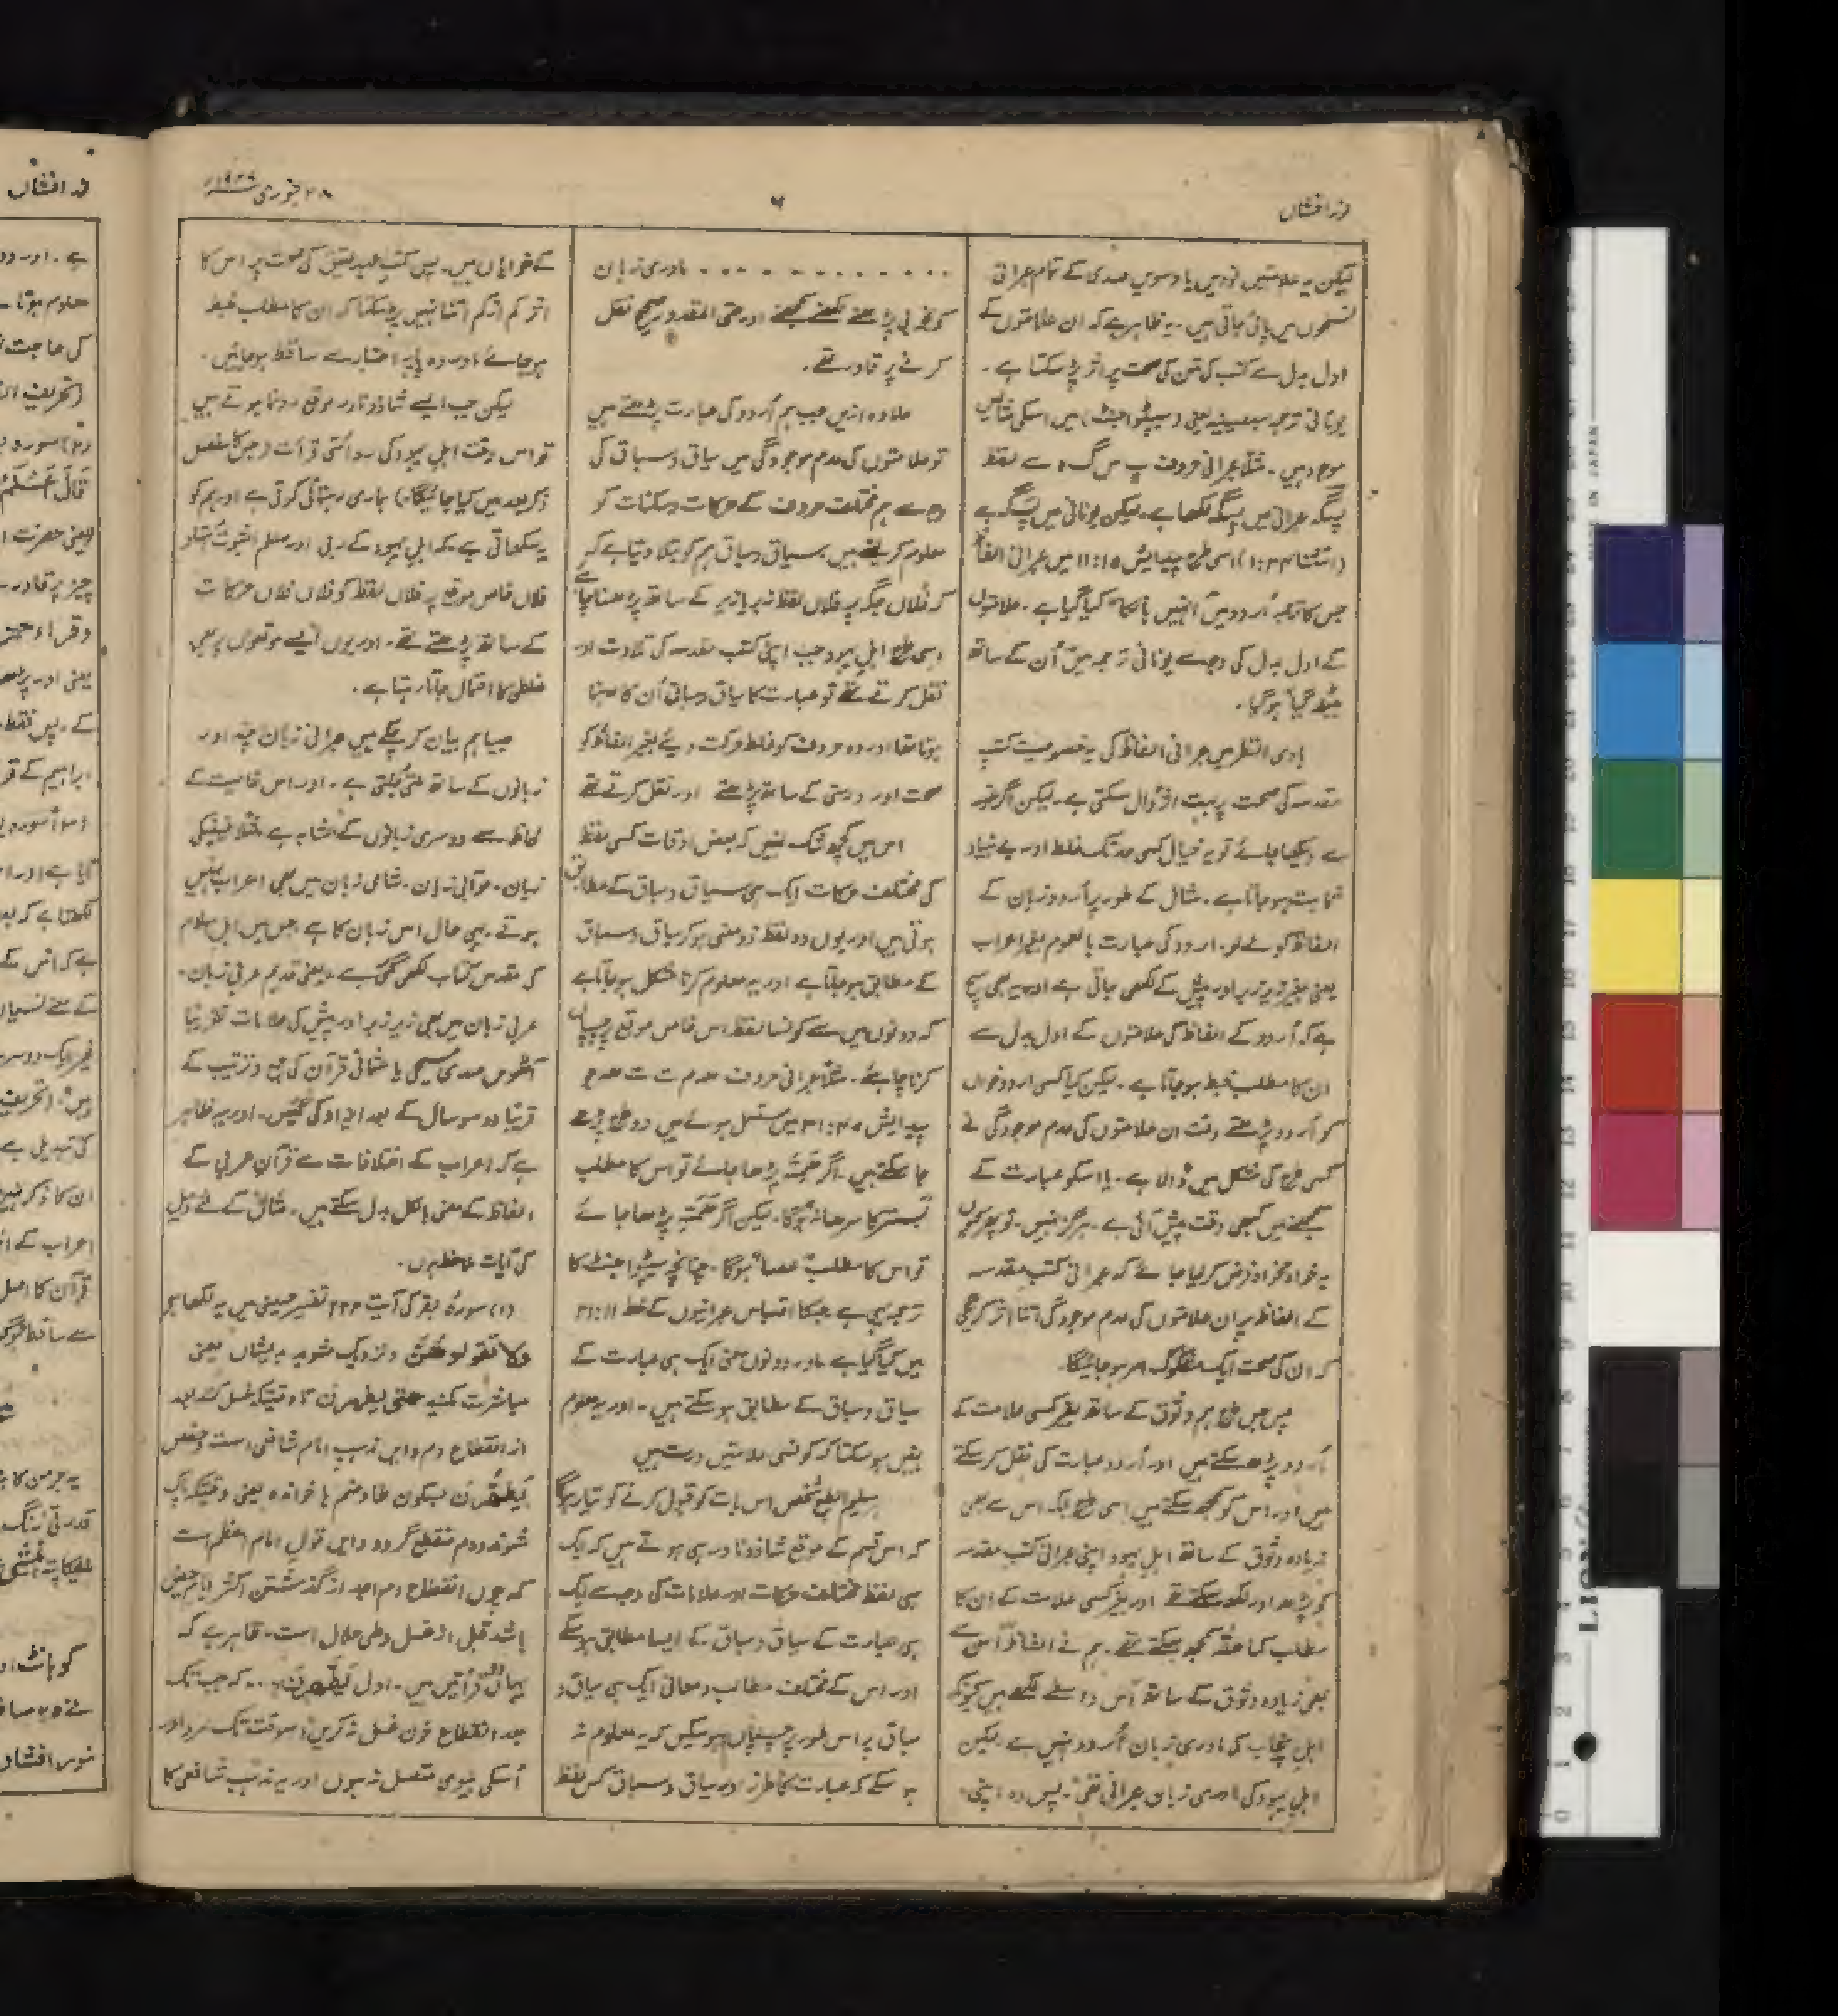 نور افشاں
۶
۲۸ جنوری
لیکن یہ علامتیں نویں یا دسویں صدی کے تمام عبرانی
نسخوں میں پائی جاتی ہیں۔ یہ ظاہر ہے کہ ان علامتوں کے
ادل بدل سے کتب کی متن کی صحت پر اثر پڑ سکتا ہے۔
یونانی ترجمہ سبعینیہ یعنی (سیپٹواجنٹ) میں اسکی مثالیں
موجود ہیں۔ مثلاً عبرانی حروف پ س گ ہ سے لفظ
پسگہ عبرانی میں پسگہ لکھا ہے۔ لیکن یونانی میں پسگہ ہے
(استثنا ۳۴:۱) اسی طرح پیدائش ۱۵:۱۱ میں عبرانی الفاظ
جس کا ترجمہ اُردو میں "انہیں ہانکا" کیا گیا ہے۔ علامتوں
کے ادل بدل کی وجہ سے یونانی ترجمہ میں "اُن کے ساتھ
بیٹھ گیا" ہو گیا۔
بادی النظر میں عبرانی الفاظ کی یہ خصوصیت کتب
مقدسہ کی صحت پر بہت اثر ڈال سکتی ہے۔ لیکن اگر غور
سے دیکھا جائے تو یہ خیال کسی حد تک غلط اور بے بنیاد
ثابت ہو جاتا ہے۔ مثال کے طور پر اُردو زبان کے
الفاظ کو لے لو۔ اردو کی عبارت بالعموم بغیر اعراب
یعنی بغیر زیر زبر اور پیش کے لکھی جاتی ہے اور یہ بھی سچ
ہے کہ اُردو کے الفاظ کی علامتوں کے ادل بدل سے
ان کا مطلب خبط ہو جاتا ہے۔ لیکن کیا کسی اردو خواں
کو اُردو پڑھتے وقت ان علامتوں کی عدم موجودگی نے
کسی طرح کی مشکل میں ڈالا ہے۔ یا اسکو عبارت کے
سمجھنے میں کبھی دقت پیش آئی ہے۔ ہرگز نہیں۔ تو پھر کیوں
یہ خواہ مخواہ فرض کر لیا جائے کہ عبرانی کتب مقدسہ
کے الفاظ پر ان علامتوں کی عدم موجودگی اتنا اثر کریگی
کہ ان کی صحت ایک مشکوک امر ہو جائیگا۔
پس جس طرح ہم وثوق کے ساتھ بغیر کسی علامت کے
اُردو پڑھ سکتے ہیں اور اُردو عبارت کی نقل کر سکتے
ہیں اور اس کو سمجھ سکتے ہیں اسی طرح بلکہ اس سے بھی
زیادہ وثوق کے ساتھ اہل یہود اپنی عبرانی کتب مقدسہ
کو پڑھ اور لکھ سکتے تھے اور بغیر کسی علامت کے ان کا
مطلب کما حقہٗ سمجھ سکتے تھے۔ ہم نے الفاظ "اس سے
بھی زیادہ وثوق کے ساتھ" اس واسطے لکھے ہیں کیونکہ
اہل پنجاب کی مادری زبان اُردو نہیں ہے۔ لیکن
اہل یہود کی مادری زبان عبرانی تھی۔ پس وہ اپنی
. . . . . . . . . . . . مادری زبان
کو بخوبی پڑھنے لکھنے سمجھنے اور حتی المقدور صحیح نقل
کرنے پر قادر تھے۔
علاوہ ازیں جب ہم اُردو کی عبارت پڑھتے ہیں
تو علامتوں کی عدم موجودگی میں سیاق و سباق کی
وجہ سے ہم مختلف حروف کے حرکات و سکنات کو
معلوم کر لیتے ہیں۔ سیاق و سباق ہم کو بتلا دیتا ہے کہ
کہ فلاں جگہ پر فلاں لفظ زبر یا زیر کے ساتھ پڑھنا چاہئے
اسی طرح اہل یہود جب اپنی کتب مقدسہ کی تلاوت اور
نقل کرتے تھے تو عبارت کا سیاق و سباق اُن کا رہنما
ہوتا تھا اور وہ حروف کو غلط حرکت دیئے بغیر الفاظ کو
صحت اور درستی کے ساتھ پڑھتے اور نقل کرتے تھے
اس میں کچھ شک نہیں کہ بعض اوقات کسی لفظ
کی مختلف حرکات ایک ہی سیاق و سباق کے مطابق
ہوتی ہیں اور یوں وہ لفظ ذو معنی ہو کر سیاق و سباق
کے مطابق ہو جاتا ہے اور یہ معلوم کرنا مشکل ہو جاتا ہے
کہ دونوں میں سے کونسا لفظ اس خاص موقع پر چسپاں
کرنا چاہئے۔ مثلاً عبرانی حروف جو
پیدایش ۴۷:۳۱ میں مستعمل ہوئے ہیں دو طرح پڑھے
جا سکتے ہیں۔ اگر پڑھا جائے تو اس کا مطلب
بستر کا سرہانہ ہوگا۔ لیکن اگر پڑھا جائے
تو اس کا مطلب "عصا" ہوگا۔ چنانچہ سیپٹواجنٹ کا
ترجمہ یہی ہے جسکا اقتباس عبرانیوں کے خط ۱۱:۲۱
میں کیا گیا ہے۔ اور دونوں معنی ایک ہی عبارت کے
سیاق و سباق کے مطابق ہو سکتے ہیں۔ اور یہ معلوم
نہیں ہو سکتا کہ کونسی علامتیں درست ہیں
ہر سلیم الطبع شخص اس بات کو قبول کرنے کو تیار ہوگا
کہ اس قسم کے موقع شاذونادر ہی ہوتے ہیں کہ ایک
ہی لفظ مختلف حرکات اور علامات کی وجہ سے ایک
ہی عبارت کے سیاق و سباق کے ایسا مطابق ہو سکے
اور اس کے مختلف مطالب و معانی ایک ہی سیاق و
سباق پر اس طور پر چسپاں ہو سکیں کہ یہ معلوم نہ
ہو سکے کہ عبارت کا طرز اور سیاق و سباق کس لفظ
کے خواہاں ہیں۔ پس کتب عہد عتیق کی صحت پر اس کا
اثر کم از کم اتنا نہیں پڑ سکتا کہ ان کا مطلب خبط
ہو جائے اور وہ پایۂ اعتبار سے ساقط ہو جائیں۔
لیکن جب ایسے شاذ و نادر موقع رونما ہوتے ہیں
تو اس وقت اہل یہود کی روائتی قرأت (جس کا مفصل
ذکر بعد میں کیا جائیگا) ہماری رہنمائی کرتی ہے اور ہم کو
یہ سکھاتی ہے کہ اہل یہود کے ربی اور مسلم الثبوت استاد
فلاں خاص موقع پر فلاں لفظ کو فلاں فلاں حرکات
کے ساتھ پڑھتے تھے۔ اور یوں ایسے موقعوں پر بھی
غلطی کا احتمال جاتا رہتا ہے۔
جیسا ہم بیان کر چکے ہیں عبرانی زبان چند اور
زبانوں کے ساتھ ملتی جُلتی ہے۔ اور اس خاصیت کے
لحاظ سے دوسری زبانوں کے مشابہ ہے مثلاً فینیکی
زبان۔ موآبی زبان۔ شامی زبان میں بھی اعراب نہیں
ہوتے۔ یہی حال اس زبان کا ہے جس میں اہل اسلام
کی مقدس کتاب لکھی گئی ہے۔ یعنی قدیم عربی زبان۔
عربی زبان میں بھی زیر زبر اور پیش کی علامات تقریباً
آٹھویں صدی مسیحی یا عثمانی قرآن کی جمع و ترتیب کے
قریباً دو سو سال کے بعد ایجاد کی گئیں۔ اور یہ ظاہر
ہے کہ اعراب کے اختلافات سے قرآن عربی کے
الفاظ کے معنی بالکل بدل سکتے ہیں۔ مثال کے لئے ذیل
کی آیات ملاحظہ ہوں۔
(۱) سورۂ بقر کی آیت ۲۲۲ تفسیر حسینی میں یہ لکھا ہے
ولا تقربوھُنَّ و نزدیک مشوید بہ ایشاں یعنی
مباشرت مکنید حتیٰ یطہرن تا وقتیکہ غسل کنند بعد
از انقطاع دم و ایں مذہب امام شافعی است و حفص
یَطْہُرْنَ بسکون طا و ضم ہا خواندہ یعنی وقتیکہ پاک
شوند و دم منقطع گردد و ایں قول امام اعظم است
کہ چوں انقطاع دم بعد از گذشتن اکثر ایام حیض
باشد قبل از غسل وطی حلال است۔ ظاہر ہے کہ
یہاں دو قرأتیں ہیں۔ اول یَطَّہَّرْنَ... کہ جب تک
بعد انقطاع خون غسل نہ کریں۔ اسوقت تک مرد اور
اُسکی بیوی متصل نہ ہوں اور یہ مذہب شافعی کا
نور افشاں